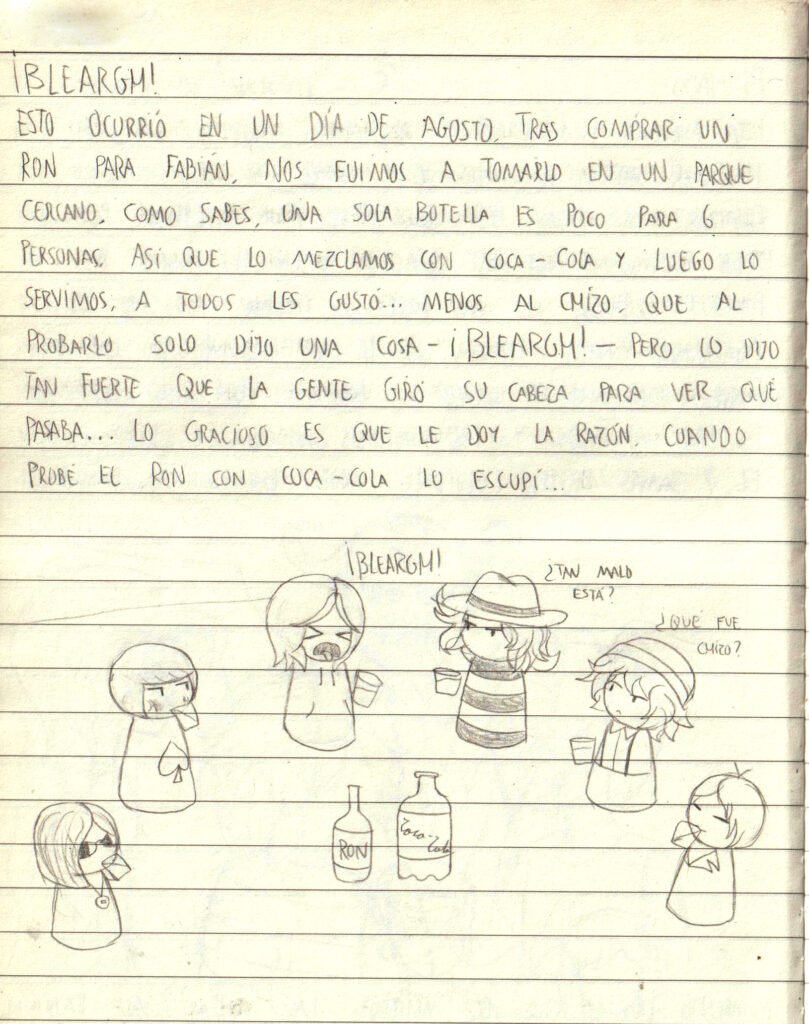 ¡BLEARGM!
ESTO OCURRIÓ EN UN DÍA DE AGOSTO, TRAS COMPRAR UN
RON PARA FABIÁN, NOS FUIMOS A TOMARLO EN UN PARQUE
CERCANO, COMO SABES, UNA SOLA BOTELLA ES POCO PARA 6
PERSONAS, ASÍ QUE LO MEZCLAMOS CON COCA COLA Y LUEGO LO
SERVIMOS, A TODOS LES GUSTÓ... MENOS AL CHIZO, QUE AL
PROBARLO SOLO DIJO UNA COSA - ¡BLEARGM! - PERO LO DIJO
TAN FUERTE QUE LA GENTE GIRÓ SU CABEZA PARA VER QUÉ
PASABA... LO GRACIOSO ES QUE LE DOY LA RAZÓN, CUANDO
PROBÉ EL RON CON COCA-COLA LO ESCUPÍ...
¡BLEARGM!
¿TAN MALO
ESTÁ?
¿QUÉ FUE
CHIZO?
RON
Coca-Cola